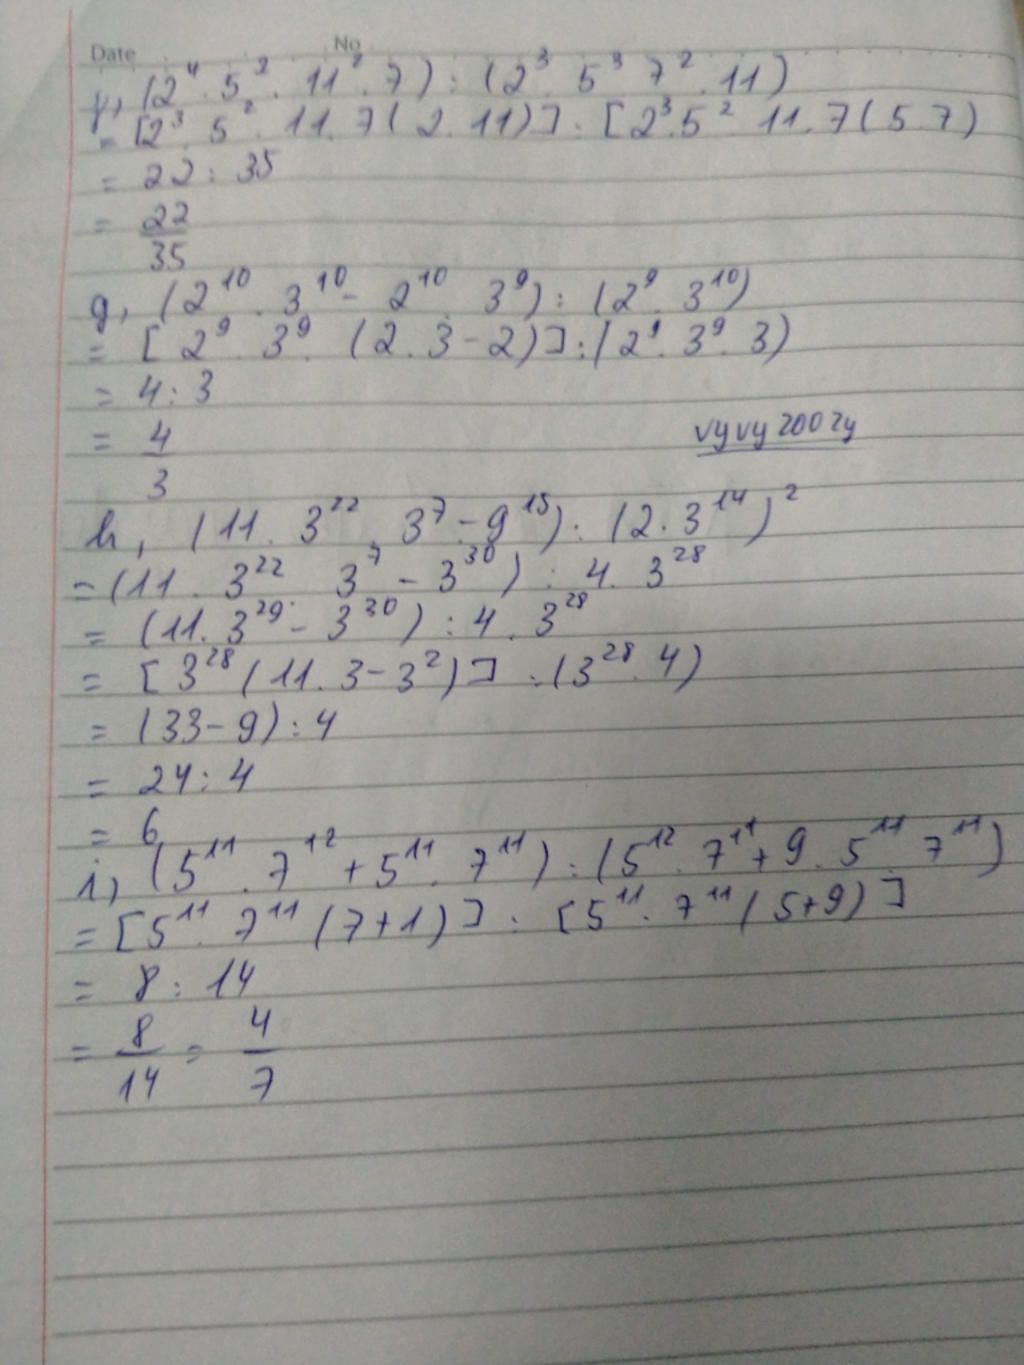 Date No
f, (2⁴. 5². 11². 7) : (2³. 5³ 7². 11)
= [2³. 5². 11. 7 ( 2. 11)] : [2³.5². 11. 7 ( 5. 7)
= 22 : 35
= 22/35
g, (2¹⁰. 3¹⁰ - 2¹⁰. 3⁹) : (2⁹. 3¹⁰)
= [ 2⁹. 3⁹. (2. 3 - 2)] : (2⁹. 3⁹. 3)
= 4 : 3
= 4/3
vyvy2002y
h, (11. 3²². 3⁷ - 9¹⁵) : (2. 3¹⁴)²
= (11. 3²² 3⁷ - 3³⁰) : 4. 3²⁸
= (11. 3²⁹ - 3³⁰) : 4. 3²⁸
= [ 3²⁸ (11. 3 - 3²)] : (3²⁸. 4)
= (33 - 9) : 4
= 24 : 4
= 6
i, (5¹¹. 7¹² + 5¹¹. 7¹¹) : (5¹². 7¹¹ + 9. 5¹¹. 7¹¹)
= [5¹¹. 7¹¹ (7 + 1)] : [5¹¹. 7¹¹ ( 5 + 9)]
= 8 : 14
= 8/14 = 4/7